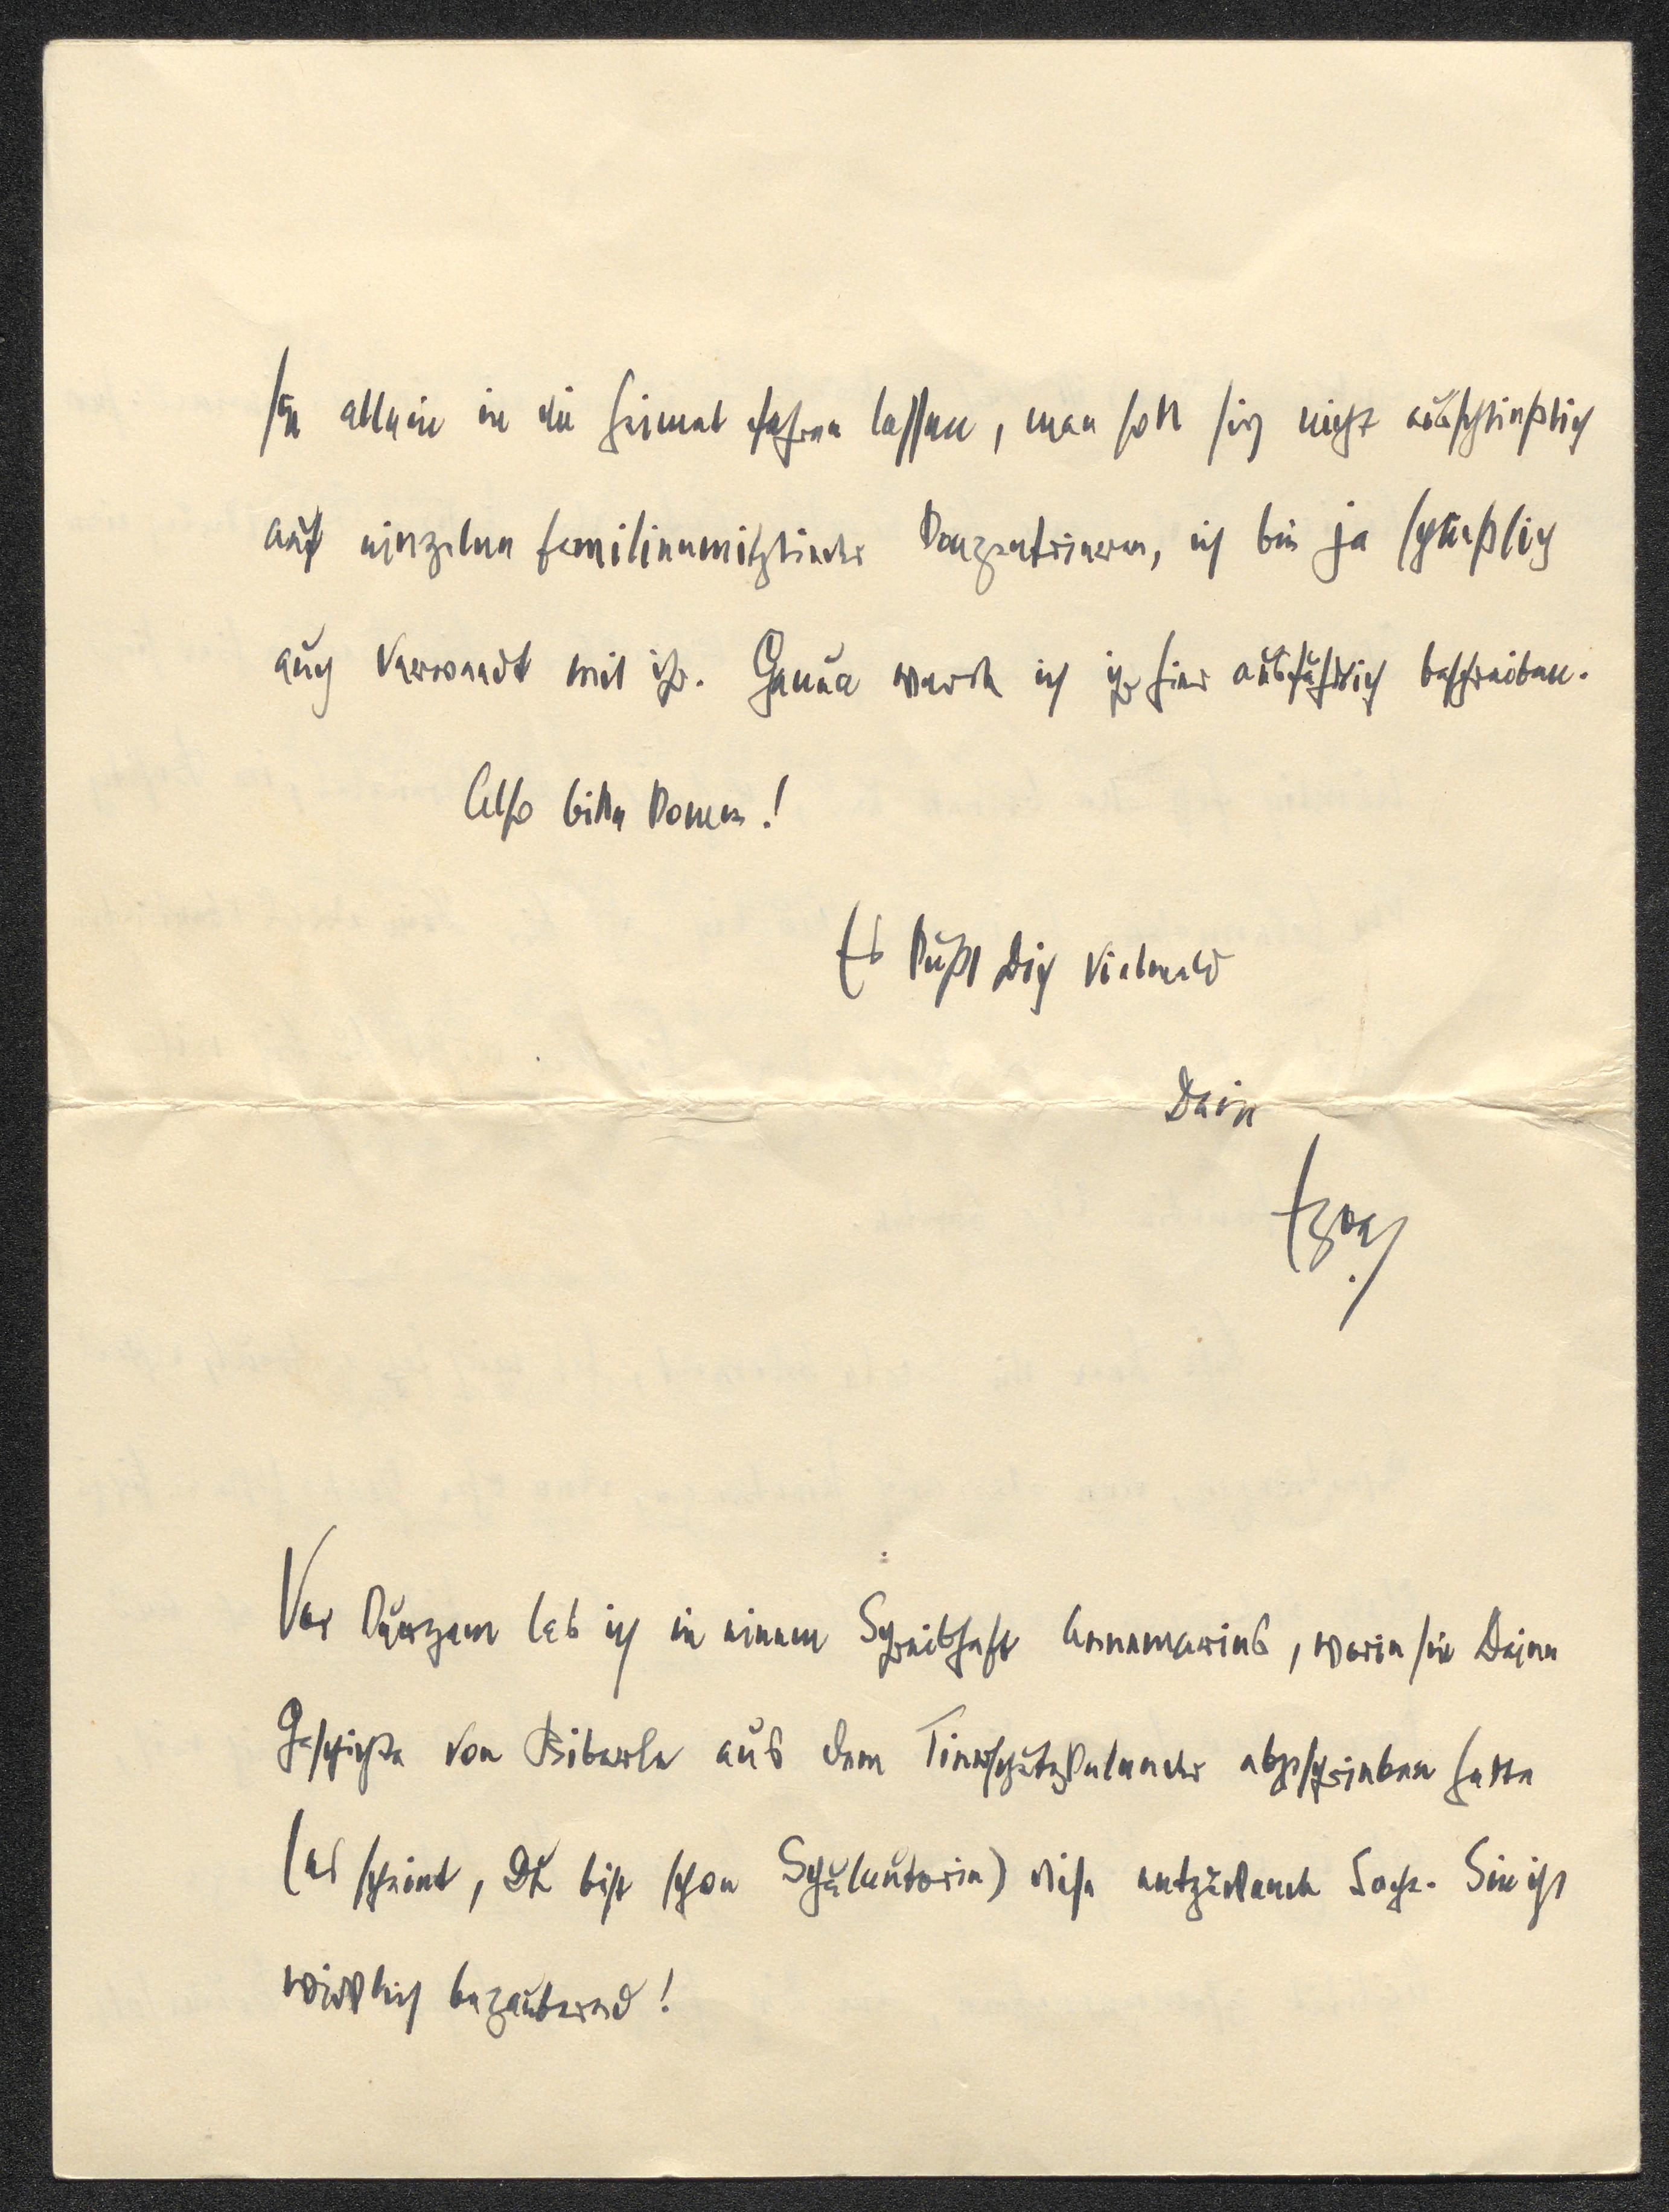 sie allein in die Heimat fahren lassen, man soll sich nicht ausschließlich
auf einzelne Familienmitglieder konzentrieren, ich bin ja schließlich
auch verwandt mit ihr. Genua werde ich ihr hier ausführlich beschreiben.
Also bitte komm!
Es küßt Dich vielmals
Dein
Vor kurzem las ich in einem Schreibheft Annemaries, worin sie Deine
Geschichte von Biberle aus dem Tierschutzkalender abgeschrieben hatte
(es scheint, Du bist schon Schulautorin) diese entzückende Sache. Sie ist
wirklich bezaubernd!